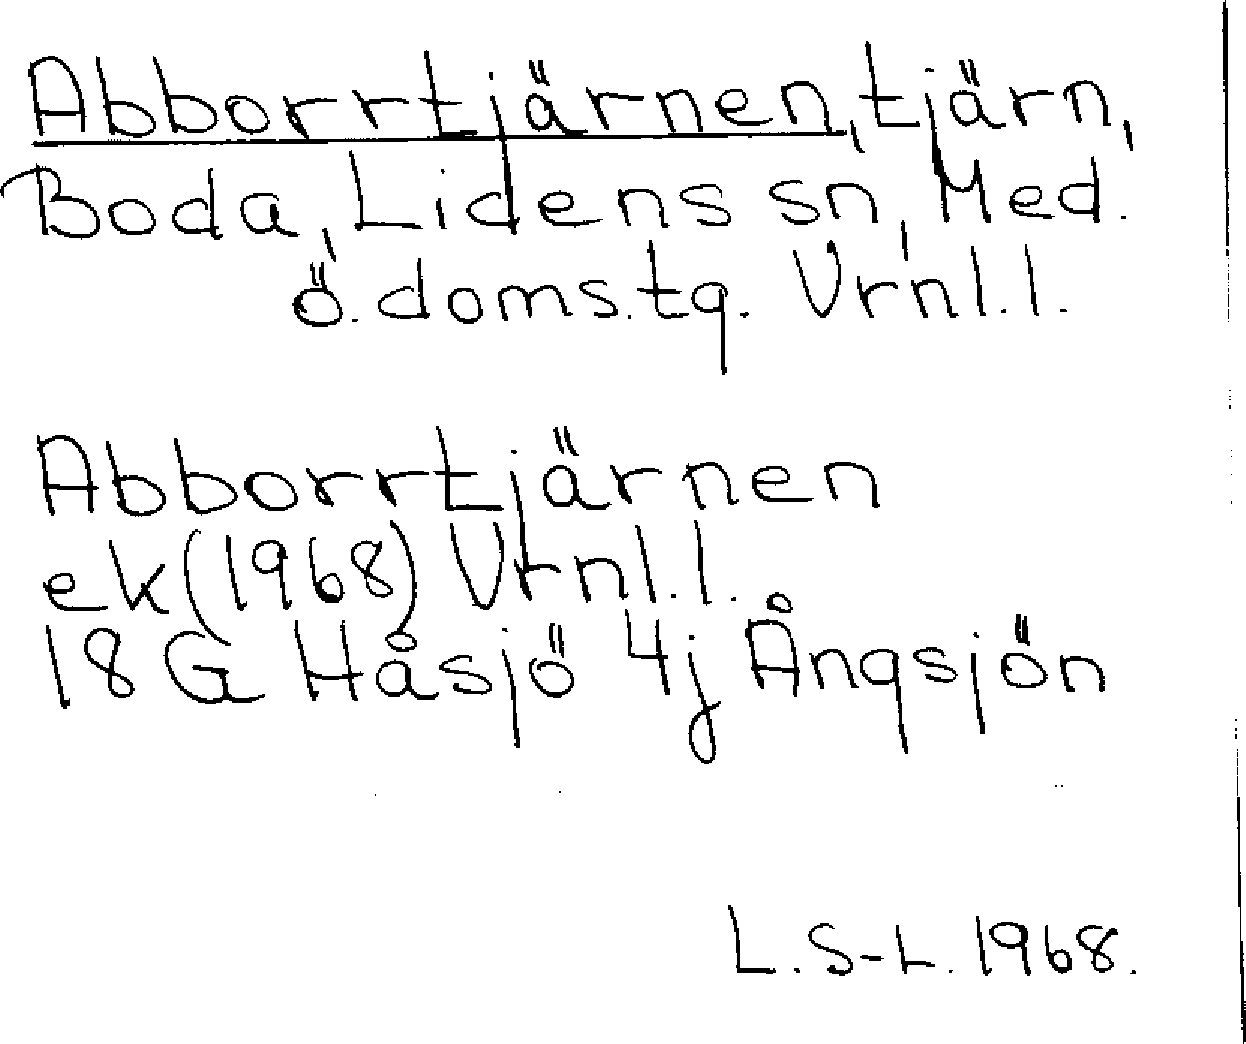 Abborrtjärnen, tjärn,
Boda, Lidens sn, Med.
ö. doms.tg. Vrnl.l.
Abborrtjärnen
ek (1968) Vrnl.l.
18 G Håsjö 4j Ångsjön
L. S-L. 1968.